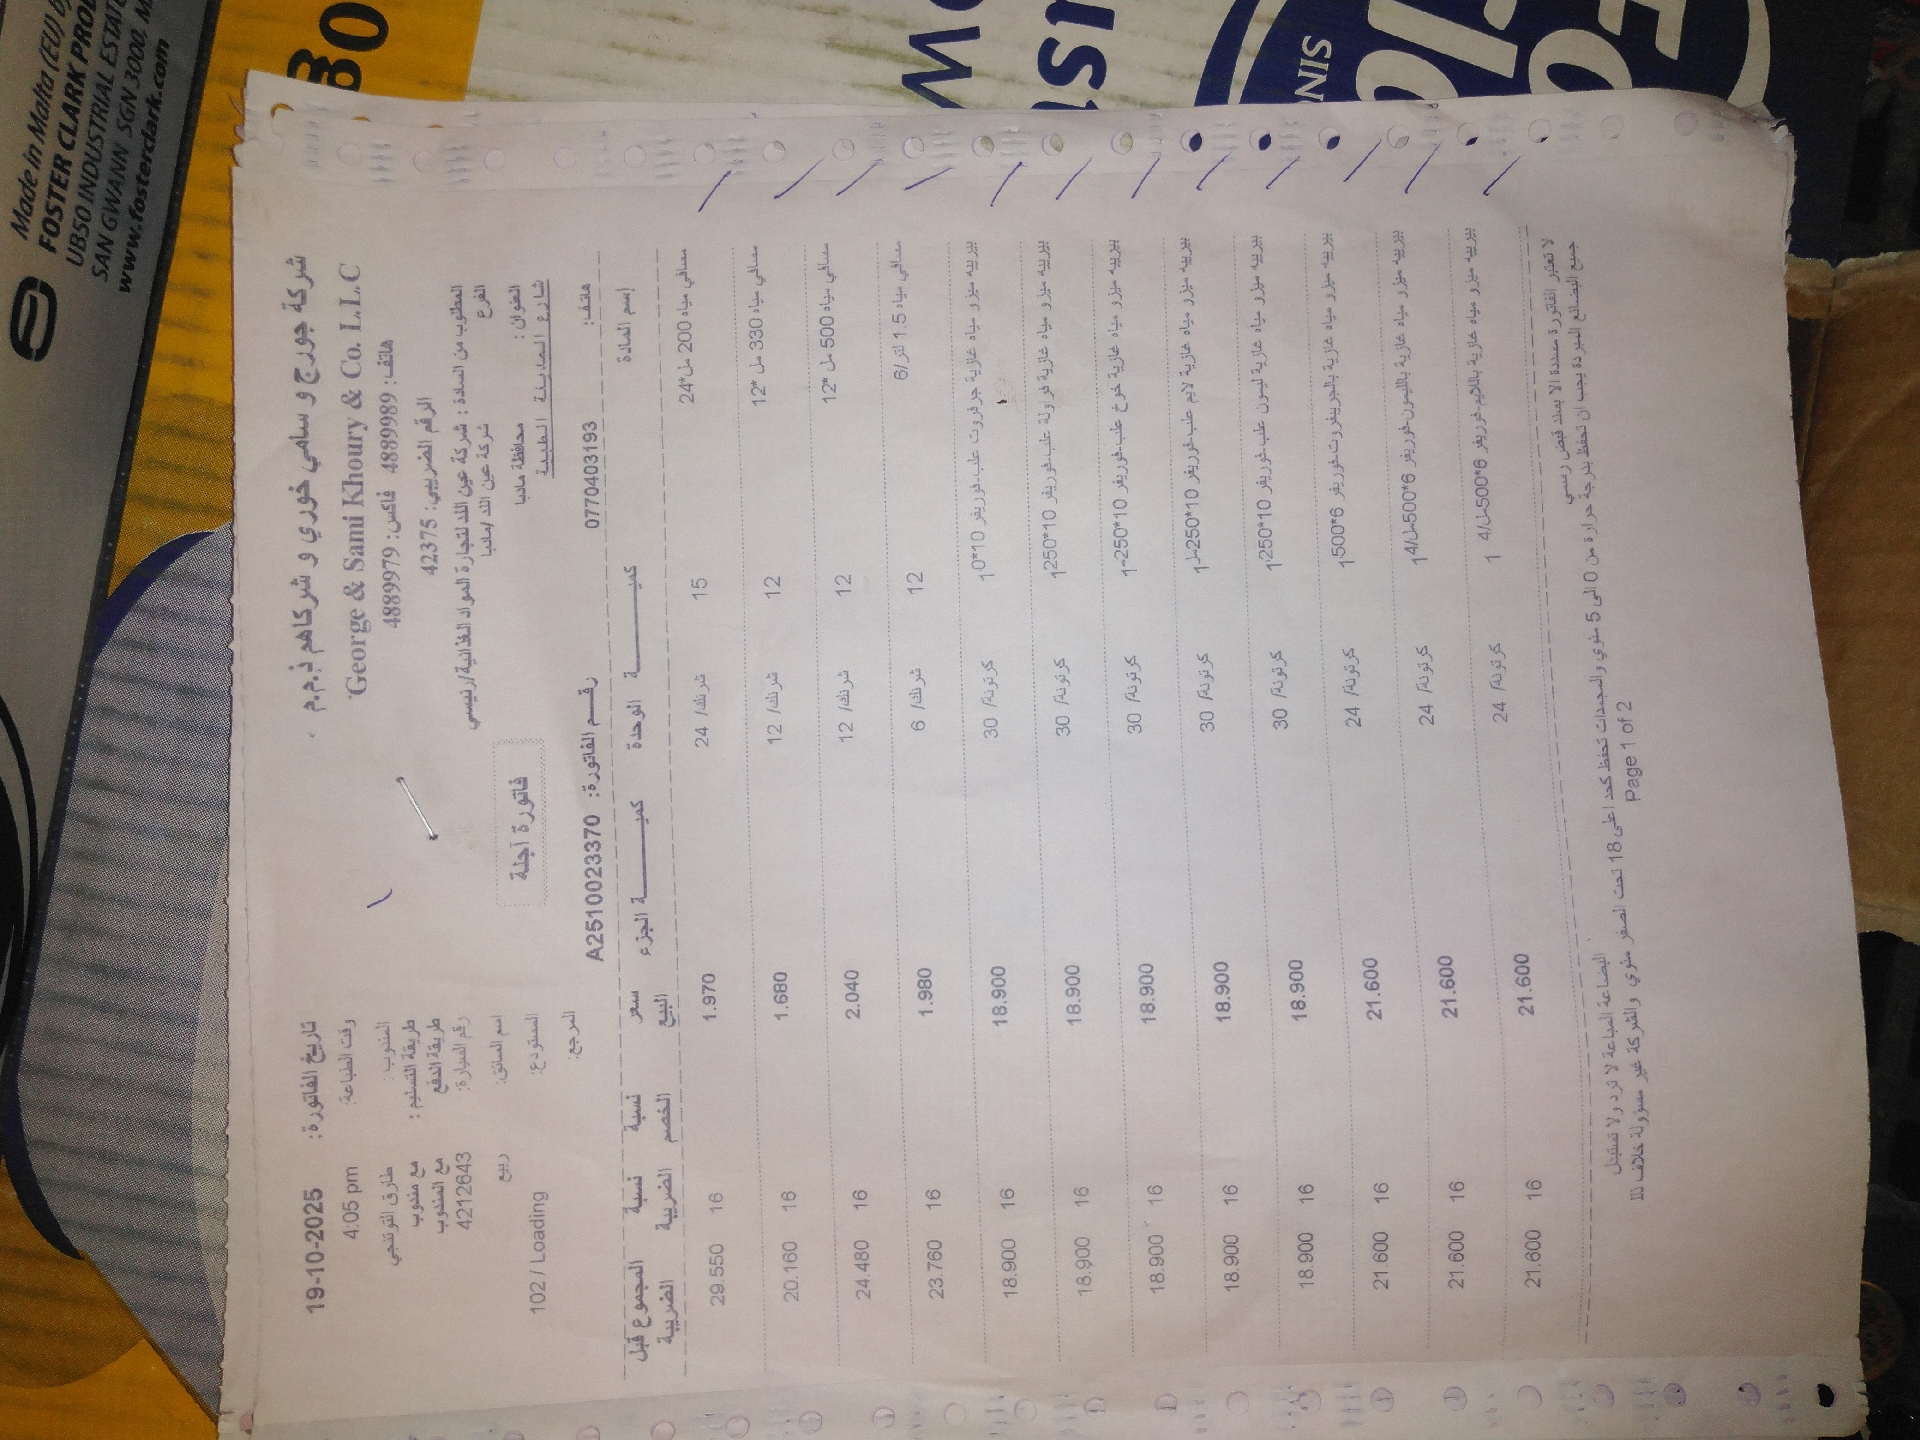 Made in Malta (EU) by
FOSTER CLARK PROD
UB50 INDUSTRIAL ESTATE
SAN GWANN SGN 3000, M
www.fosterclark.com
30
SIN
شركة جورج و سامي خوري و شركاهم ذ.م.م
George & Sami Khoury & Co. L.L.C
هاتف: 4889989 فاكس: 4889979
الرقم الضريبي: 42375
المطلوب من السادة : شركة عين اللد لتجارة المواد الغذائية/رئيسي
الفرع شركة عين اللد /مادبا
العنوان : محافظة مادبا
شارع المدينة الطبية
هاتف: 0770403193
فاتورة آجلة
رقم الفاتورة: A2510023370
تاريخ الفاتورة: 19-10-2025
وقت الطباعة: 4:05 pm
المندوب : طارق التوتنجي
طريقة التسليم : مع مندوب
طريقة الدفع مع المندوب
رقم السيارة: 4212643
اسم السائق: ربيع
المستودع: 102 / Loading
المرجع:
إسم المادة كميـــة الوحدة كميـــة الجزء سعر البيع نسبة الخصم نسبة الضريبة المجموع قبل الضريبة
مسافي مياه 200 مل*24 15 شرنك/ 24 1.970 16 29.550
مسافي مياه 330 مل *12 12 شرنك/ 12 1.680 16 20.160
مسافي مياه 500 مل *12 12 شرنك/ 12 2.040 16 24.480
مسافي مياه 1.5 لتر/6 12 شرنك/ 6 1.980 16 23.760
بيرييه ميزو مياه غازية جرفروت علب-فوريفر 10*0 1 كرتونة/ 30 18.900 16 18.900
بيرييه ميزو مياه غازية فراولة علب-فوريفر 10*250 1 كرتونة/ 30 18.900 16 18.900
بيرييه ميزو مياه غازية خوخ علب-فوريفر 10*250 1 كرتونة/ 30 18.900 16 18.900
بيرييه ميزو مياه غازية لايم علب-فوريفر 10*250 1 كرتونة/ 30 18.900 16 18.900
بيرييه ميزو مياه غازية ليمون علب-فوريفر 10*250 1 كرتونة/ 30 18.900 16 18.900
بيرييه ميزو مياه غازية بالجريبفروت-فوريفر 6*500 1 كرتونة/ 24 21.600 16 21.600
بيرييه ميزو مياه غازية بالليمون-فوريفر 6*500مل/4 1 كرتونة/ 24 21.600 16 21.600
بيرييه ميزو مياه غازية باللايم-فوريفر 6*500مل/4 1 كرتونة/ 24 21.600 16 21.600
لا تعتبر الفاتورة مسددة الا بسند قبض رسمي
البضاعة المباعة لا ترد ولا تستبدل
جميع البضائع المبردة يجب ان تحفظ بدرجة حرارة من 0 الى 5 مئوي والمجمدات تحفظ كحد اعلى 18 تحت الصفر مئوي والشركة غير مسؤولة خلاف ذلك
Page 1 of 2